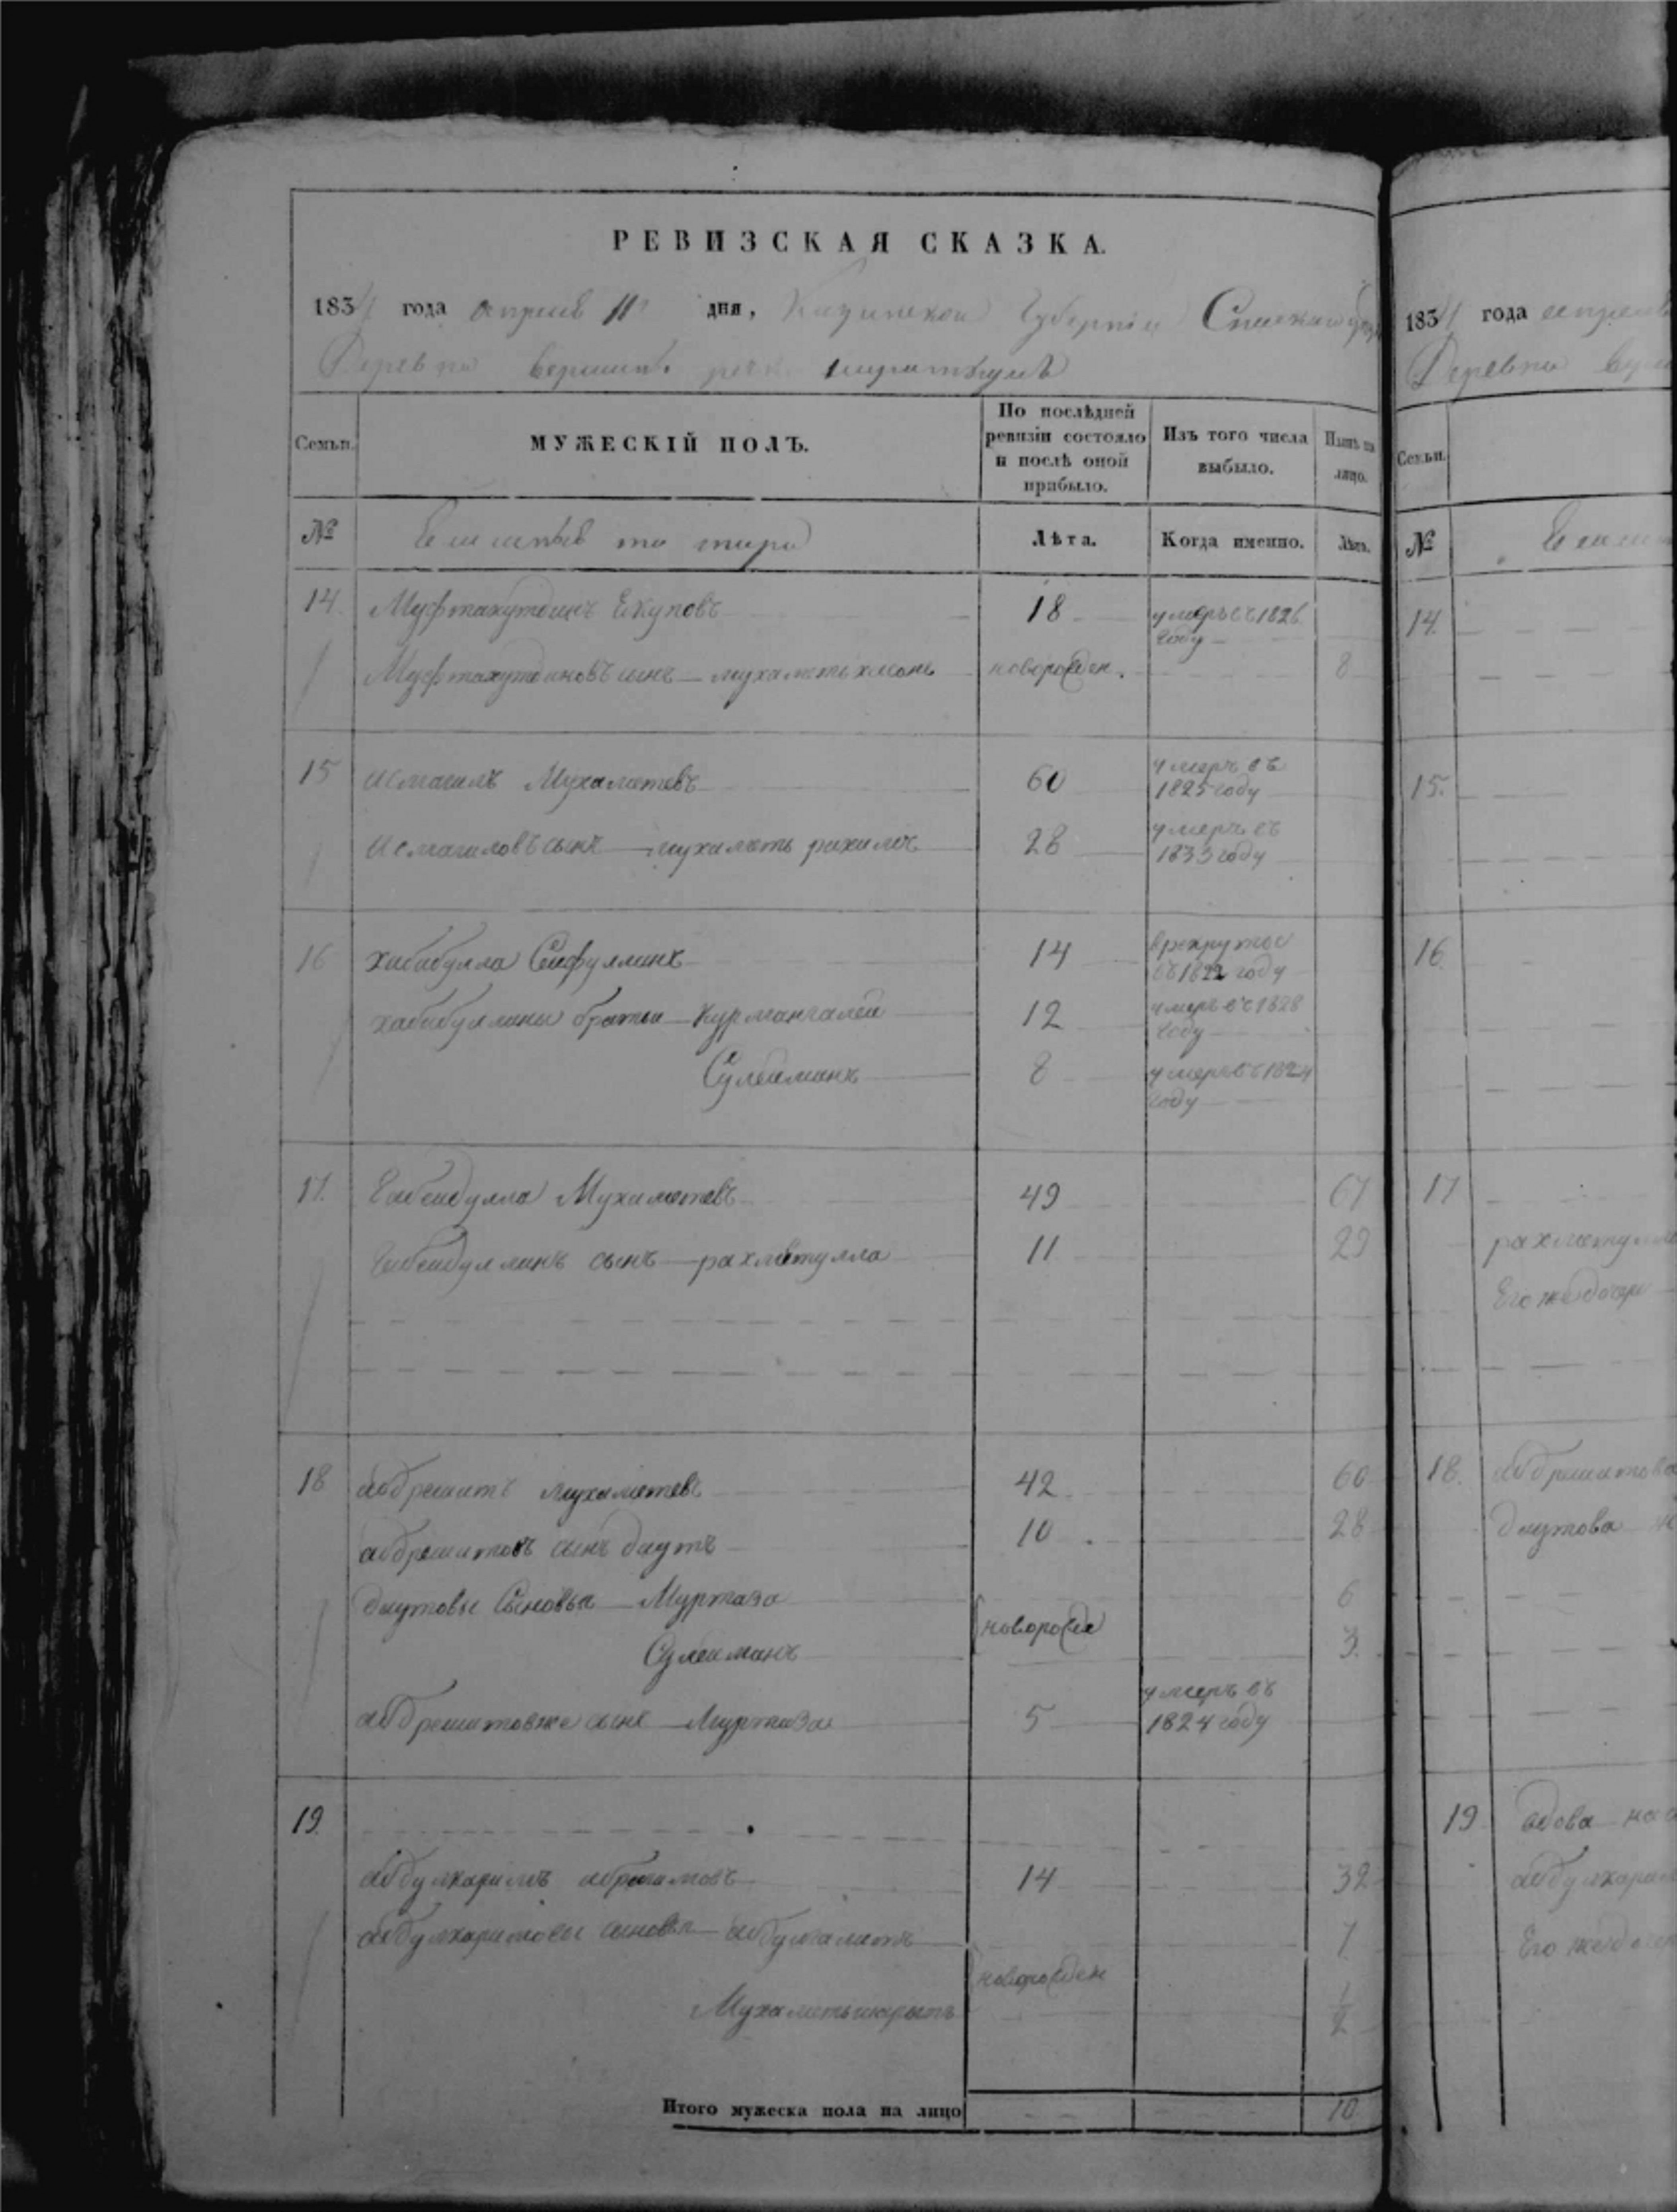 РЕВИЗСКАЯ СКАЗКА.
1834 года апреля 11 дня, Казанской Губернии Спаскаго
Деревни вершинъ
Семьи.
МУЖЕСКІЙ ПОЛЪ.
По послѣдней ревизіи состояло и послѣ оной прибыло.
Изъ того числа выбыло.
Нынѣ на лицо.
№
Лѣта.
Когда именно.
Лѣта.
14. Муфтахутдинъ Екуповъ 18 умеръ въ 1826 году
Муфтахутдиновъ сынъ мухаметьхжанъ новорожден. 8
15 исмагилъ Мухаметевъ 60 умеръ въ 1825 году
исмагиловъ сынъ мухаметь рахимъ 28 умеръ въ 1833 году
16 хабибулла Сейфуллинъ 14 врекруты въ 1822 году
хабибуллины братья Курмангалей 12 умеръ въ 1828 году
Сулейманъ 8 умеръ въ 1824 году
17. Габейдулла Мухаметевъ 49 67
Габейдуллинъ сынъ рахметулла 11 29
18 абдрешитъ мухаметевъ 42 60
абдрешитовъ сынъ даутъ 10 28
даутовы Сыновья Муртаза 6
новорожде
Сулейманъ 3.
абдрешитовже сынъ Муртаза 5 умеръ въ 1824 году
19.
абдулкаримъ 14 32
абдулкаримовы сыновья 7
новорожден
1/2
Итого мужеска пола на лицо 10
1834 года апреля
Деревни
Семьи.
№
14.
15.
16
17
рахметулл
Его же дочери
18. абдрешитова
даутова
19 вдова
абдулкарим
Его же дочер